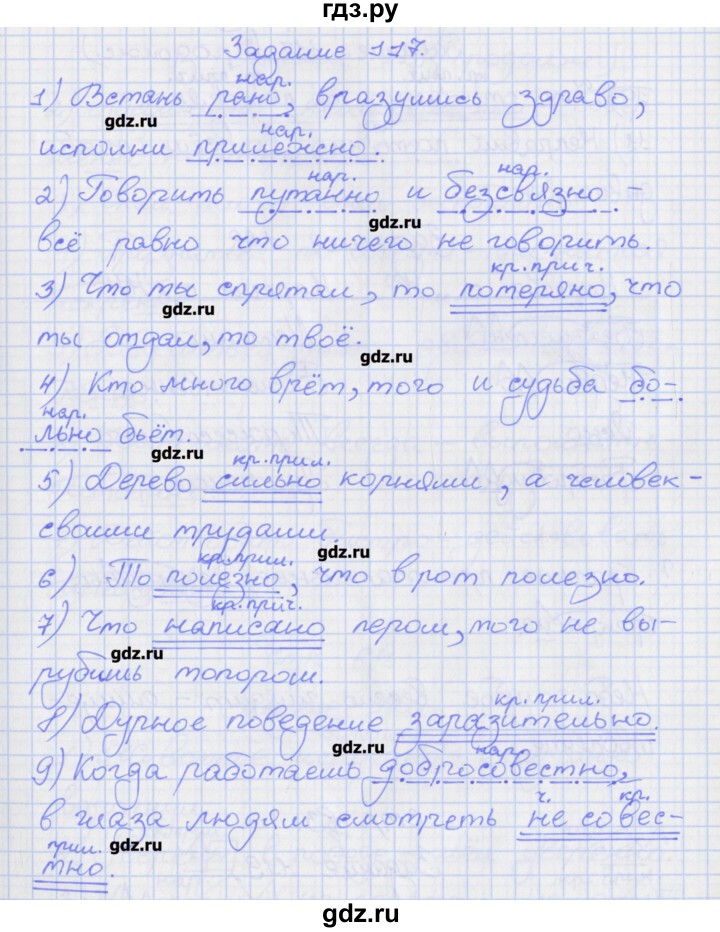 гдз.ру
Задание 117.
нар.
1) Встань рано, вразумись здраво,
gdz.ru
нар.
исполни прилежно.
нар. нар.
2) Говорить путанно и безсвязно –
gdz.ru
всё равно что ничего не говорить.
кр.прич.
3) Что ты спрятал, то потеряно, что
gdz.ru
ты отдал, то твоё.
gdz.ru
4) Кто много врёт, того и судьба бо-
нар.
льно бьёт.
gdz.ru
кр.прил.
5) Дерево сильно корнями, а человек-
своими трудами.
кр.прил. gdz.ru
6) То полезно, что в рот полезно.
кр.прич.
7) Что написано пером, того не вы-
gdz.ru
рубишь топором.
кр.прил.
8) Дурное поведение заразительно.
gdz.ru нар.
9) Когда работаешь добросовестно,
ч. кр.
в глаза людям смотреть не совес-
прил. gdz.ru
тно.
gdz.ru